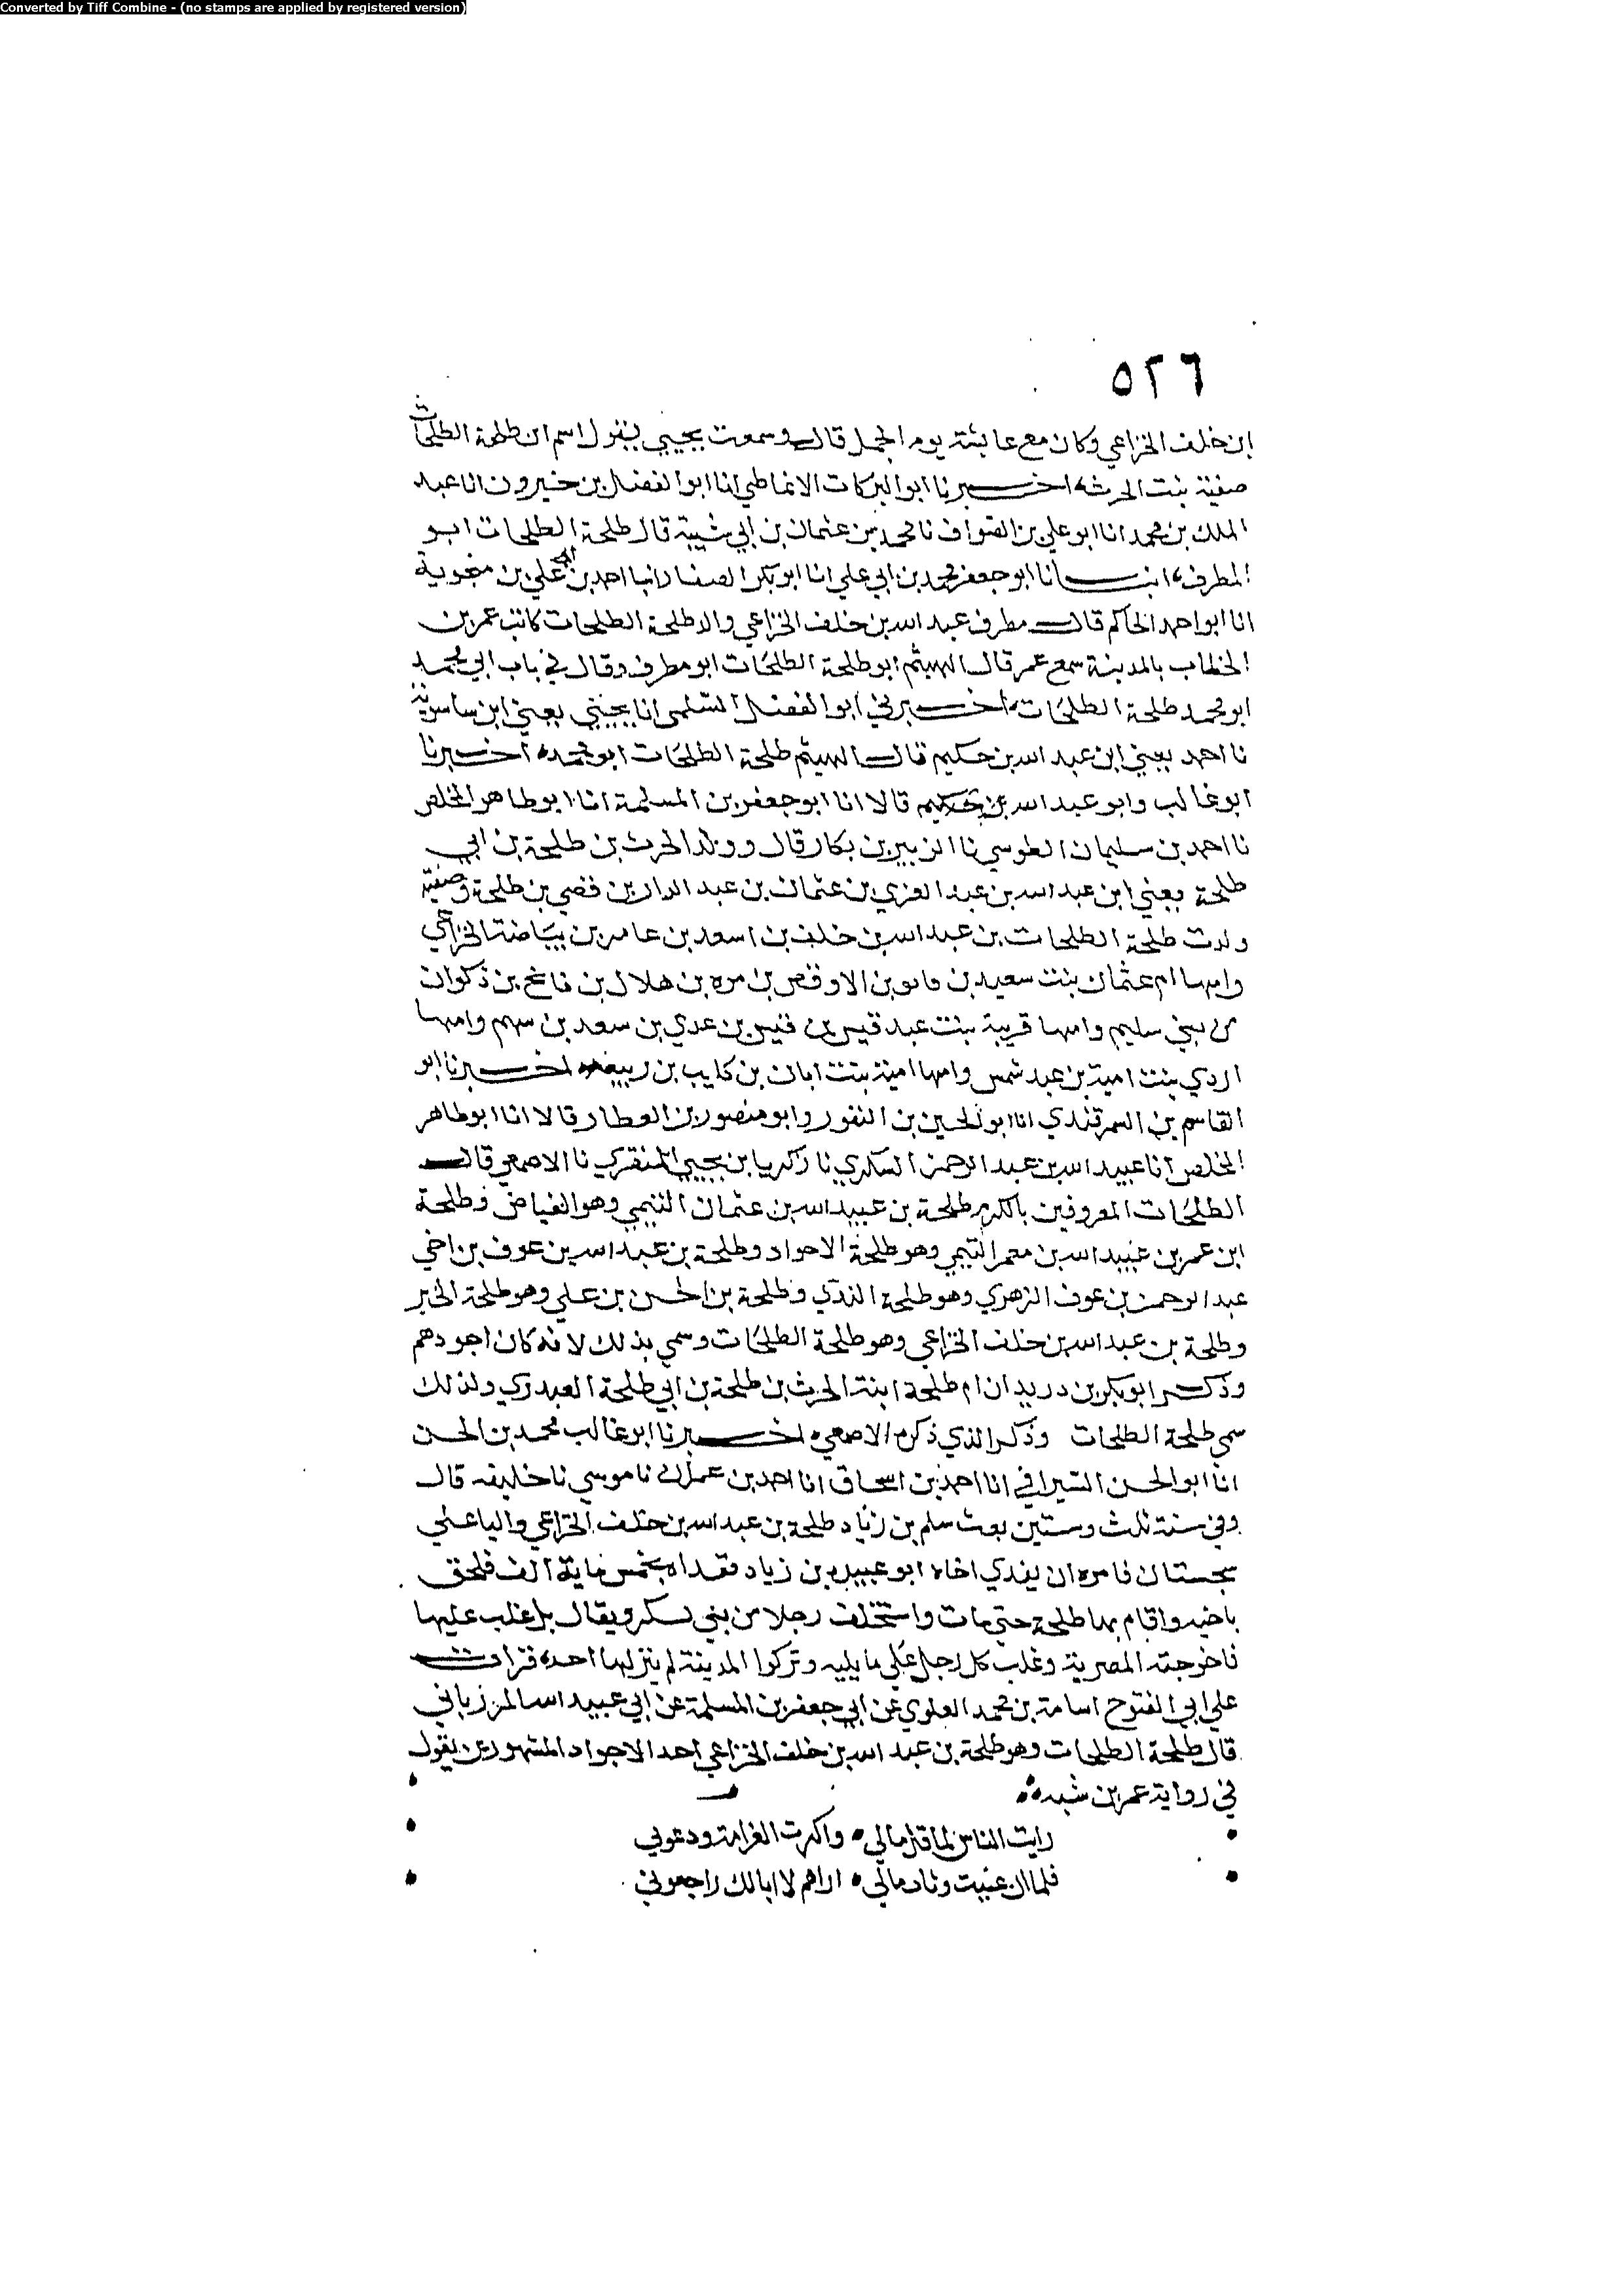 Converted by Tiff Combine - (no stamps are applied by registered version)
٥٢٦
ابن خلف الخزاعي وكان مع عايشة يوم الجمل قال وسمعت يحيى يقول اسم ام طلحة الطلحات
صفية بنت الحرث اخبرنا ابو البركات الانماطي انا ابو الفضل بن خيرون انا عبد
الملك بن محمد انا ابو علي بن الصواف نا محمد بن عثمان بن ابي شيبة قال طلحة الطلحات ابو
المطرف انبانا ابو جعفر محمد بن ابي علي انا ابو بكر الصفار انبا احمد بن علي بن منجوية
انا ابو احمد الحاكم قال مطرف عبد الله بن خلف الخزاعي والد طلحة الطلحات كاتب عمر بن
الخطاب بالمدينة سمع عمر قال الهيثم ابو طلحة الطلحات ابو مطرف وقال في باب ابي محمد
ابو محمد طلحة الطلحات اخبرني ابو الفضل السلمي انا يحيى يعني ابن ساسوية
نا احمد يعني ابن عبد الله بن حكيم قال الهيثم طلحة الطلحات ابو محمد اخبرنا
ابو غالب وابو عبد الله قالا انا ابو جعفر بن المسلمة انا ابو طاهر المخلص
نا احمد بن سليمان الطوسي نا الزبير بن بكار قال وولد الحرث بن طلحة بن ابي
طلحة يعني ابن عبد الله بن عبد العزي بن عثمان بن عبد الدار بن قصي بن طلحة وصفية
ولدت طلحة الطلحات بن عبد الله بن خلف بن اسعد بن عامر بن بياضة الخزاعي
وامها ام عثمان بنت سعيد بن بن الاوقص بن مره بن هلال بن فالج بن ذكوان
من بني سليم وامها قريبة بنت عبد قيس بن قيس بن عدي بن سعد بن سهم وامها
اروي بنت امية بن عبد شمس وامها امينة بنت ابان بن كليب بن ربيعه اخبرنا ابو
القاسم بن السمرقندي انا ابو الحسين بن النقور وابو منصور بن العطار قالا انا ابو طاهر
المخلص انا عبيد الله بن عبد الرحمن السكري نا زكريا بن يحيى المنقري نا الاصمعي قال
الطلحات المعروفين بالكرم طلحة بن عبيد الله بن عثمان التيمي وهو الفياض وطلحة
ابن عمر بن عبيد الله بن معمر التيمي وهو طلحة الاجواد وطلحة بن عبد الله بن عوف بن اخي
عبد الرحمن بن عوف الزهري وهو طلحة الندي وطلحة بن الحسن بن علي وهو طلحة الخير
وطلحة بن عبد الله بن خلف الخزاعي وهو طلحة الطلحات وسمي بذلك لانه كان اجودهم
وذكر ابو بكر بن دريد ان ام طلحة ابنة الحرث بن طلحة بن ابي طلحة العبدري ولذلك
سمي طلحة الطلحات وذكر الذي ذكره الاصمعي اخبرنا ابو غالب محمد بن الحسن
انا ابو الحسن السيرافي انا احمد بن اسحاق انا احمد بن عمران نا موسي نا خليفه قال
وفي سنة ثلث وستين بعث سلم بن زياد طلحة بن عبد الله بن خلف الخزاعي واليا علي
سجستان فامره ان يفدي اخاه ابو عبيدة بن زياد ففداه بخمس ماية الف فلحق
باخيه واقام بها طلحة حتى مات واستخلف رجلا من بني يشكر ويقال بل غلب عليها
فاخرجته المصرية وغلب كل رجل علي ما يليه وتركوا المدينة لم ينزلها احد قرات
علي ابي الفتوح اسامة بن محمد العلوي عن ابي جعفر بن المسلمة عن ابي عبيد الله المرزباني
قال طلحة الطلحات وهو طلحة بن عبد الله بن خلف الخزاعي احد الاجواد المشهورين يقول
في رواية عمر بن شبه
رايت الناس لما قل مالي واكثرت الغرامة ودعوني
فلما ان غنيت وثاب مالي اراهم لا ابا لك راجعوني